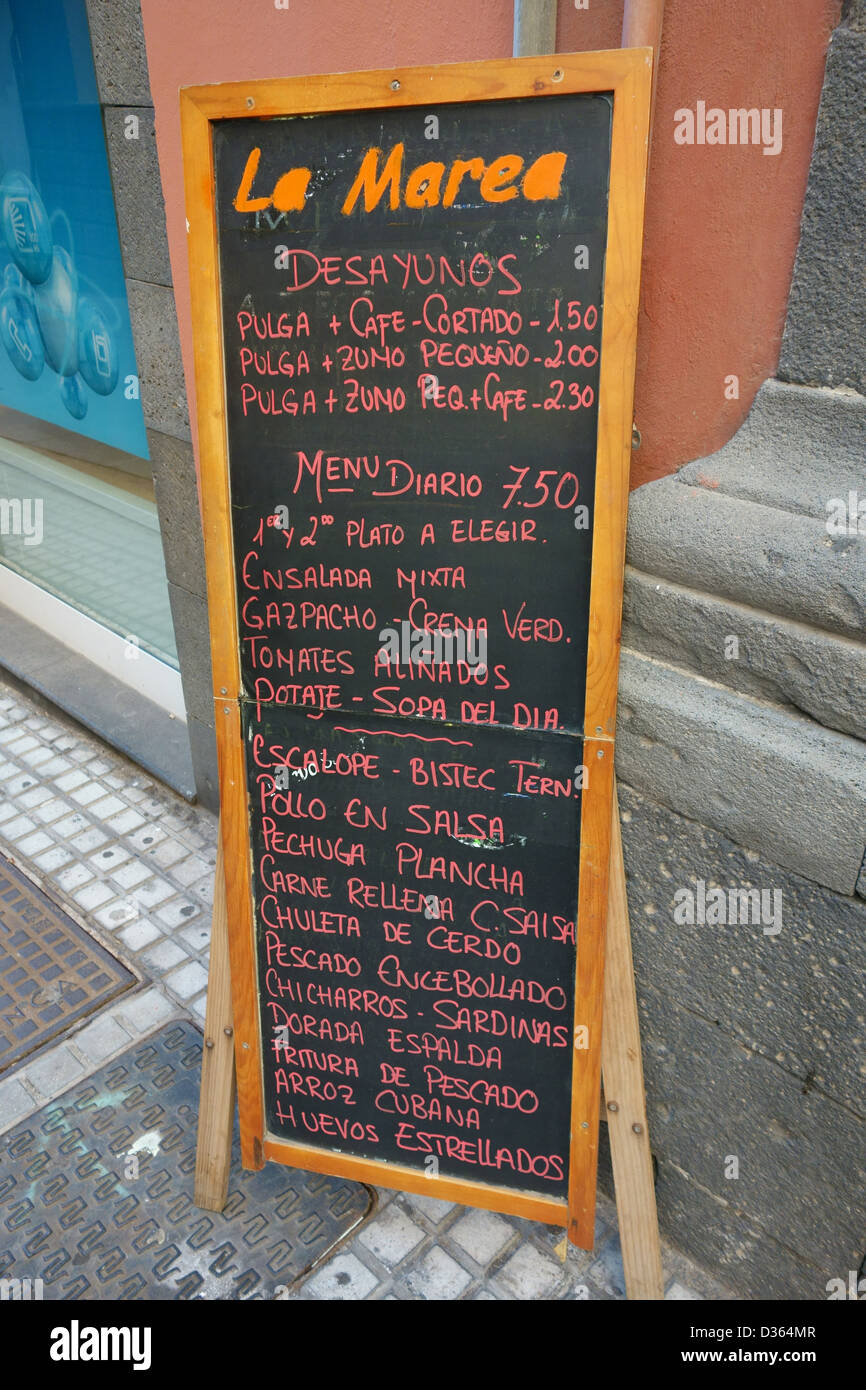 La Marea
DESAYUNOS
PULGA + CAFE - CORTADO - 1.50
PULGA + ZUMO PEQUEÑO - 2.00
PULGA + ZUMO PEQ. + CAFE - 2.30
MENU DIARIO 7.50
1er Y 2do PLATO A ELEGIR.
ENSALADA MIXTA
GAZPACHO - CREMA VERD.
TOMATES ALIÑADOS
POTAJE - SOPA DEL DIA.
ESCALOPE - BISTEC TERN.
POLLO EN SALSA
PECHUGA PLANCHA
CARNE RELLENA C. SALSA
CHULETA DE CERDO
PESCADO ENCEBOLLADO
CHICHARROS - SARDINAS
DORADA ESPALDA
FRITURA DE PESCADO
ARROZ CUBANA
HUEVOS ESTRELLADOS
alamy
Image ID: D364MR
www.alamy.com